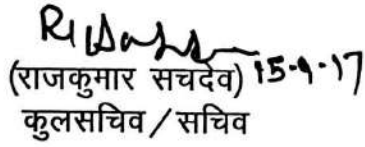 (राजकुमार सचदेव) 15-9-17
कुलसचिव / सचिव